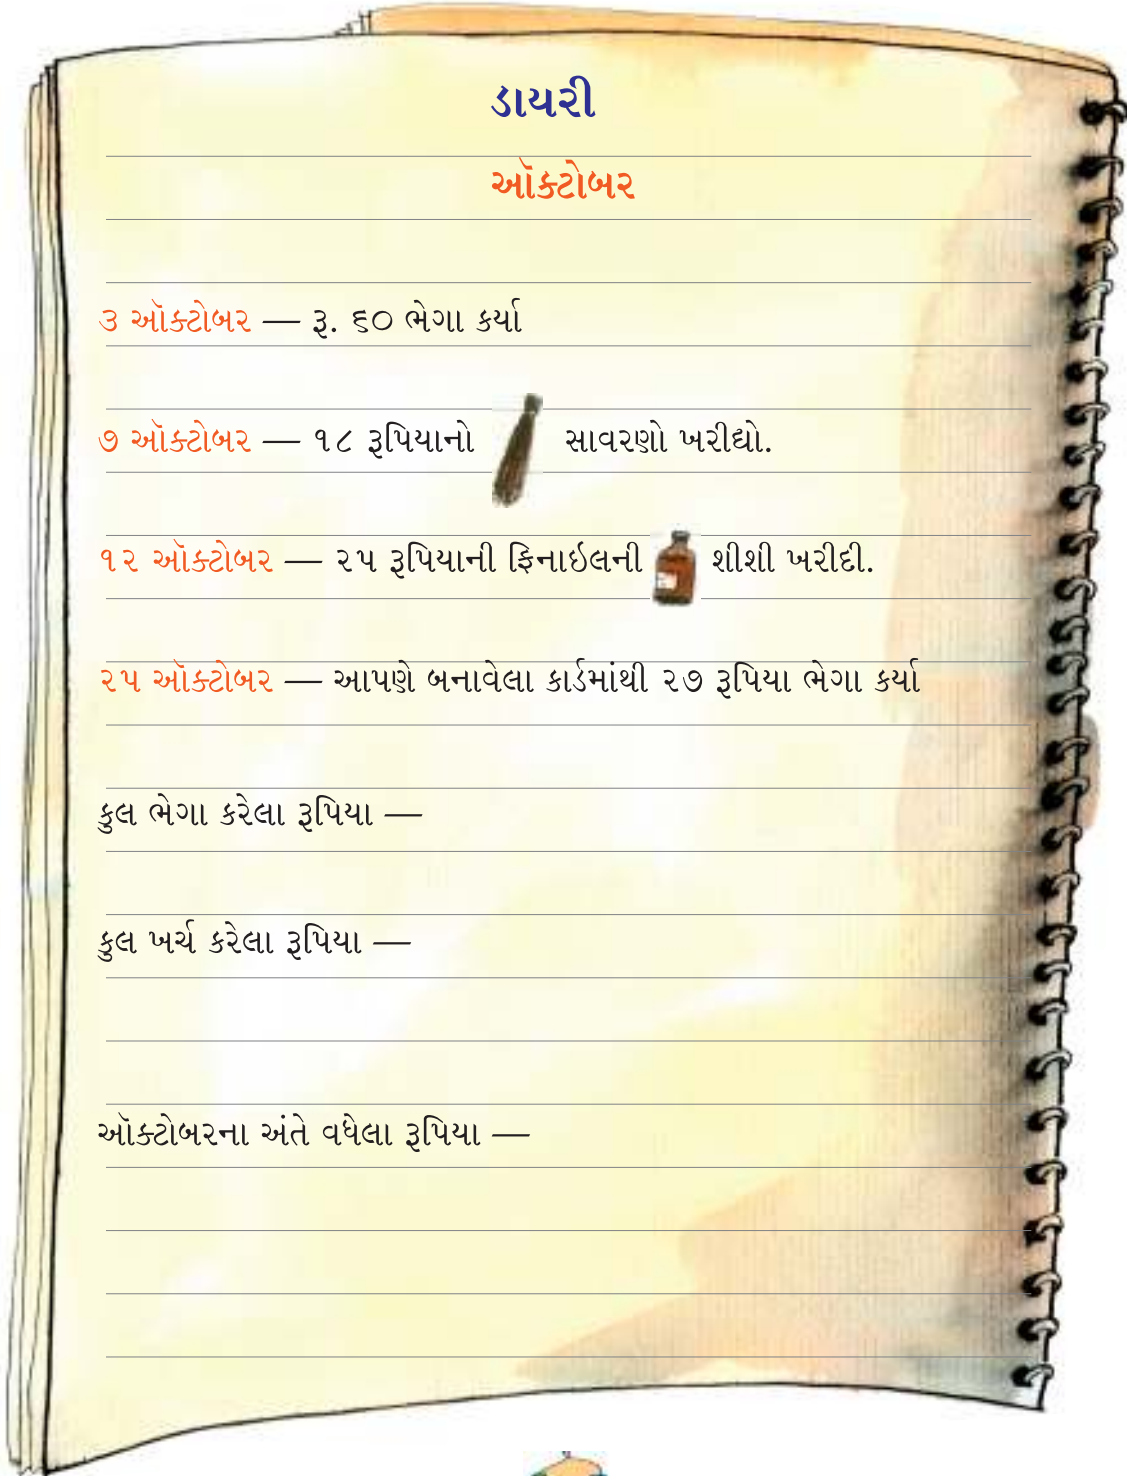 ડાયરી
ઑક્ટોબર
૩ ઑક્ટોબર — રૂ. ૬૦ ભેગા કર્યા
૭ ઑક્ટોબર — ૧૮ રૂપિયાનો સાવરણો ખરીદ્યો.
૧૨ ઑક્ટોબર — ૨૫ રૂપિયાની ફિનાઇલની શીશી ખરીદી.
૨૫ ઑક્ટોબર — આપણે બનાવેલા કાર્ડમાંથી ૨૭ રૂપિયા ભેગા કર્યા
કુલ ભેગા કરેલા રૂપિયા —
કુલ ખર્ચ કરેલા રૂપિયા —
ઑક્ટોબરના અંતે વધેલા રૂપિયા —